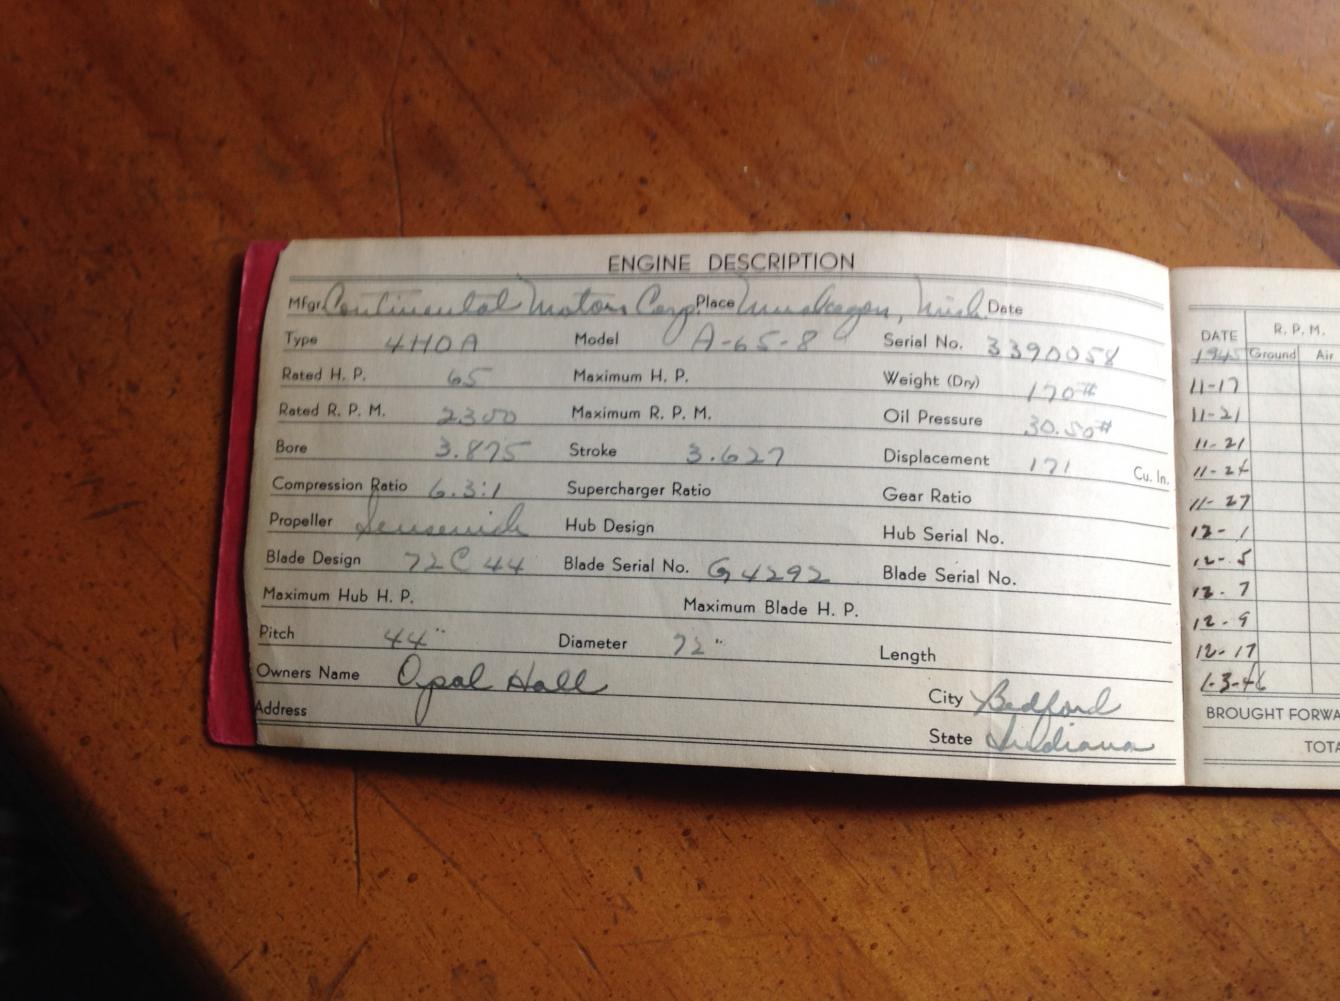 ENGINE DESCRIPTION
Mfgr. Continental Motors Corp. Place Muskegon, Mich. Date
Type 4HOA Model A-65-8 Serial No. 3390058
Rated H. P. 65 Maximum H. P. Weight (Dry) 170#
Rated R. P. M. 2300 Maximum R. P. M. Oil Pressure 30.50#
Bore 3.875 Stroke 3.627 Displacement 171 Cu. In.
Compression Ratio 6.3:1 Supercharger Ratio Gear Ratio
Propeller Sensenich Hub Design Hub Serial No.
Blade Design 72C44 Blade Serial No. G4292 Blade Serial No.
Maximum Hub H. P. Maximum Blade H. P.
Pitch 44" Diameter 72" Length
Owners Name Opal Hall City Bedford
Address State Indiana
DATE R. P. M.
1945 Ground Air
11-17
11-21
11-21
11-24
11-27
12-1
12-5
12-7
12-9
12-17
1-3-46
BROUGHT FORWA
TOTA